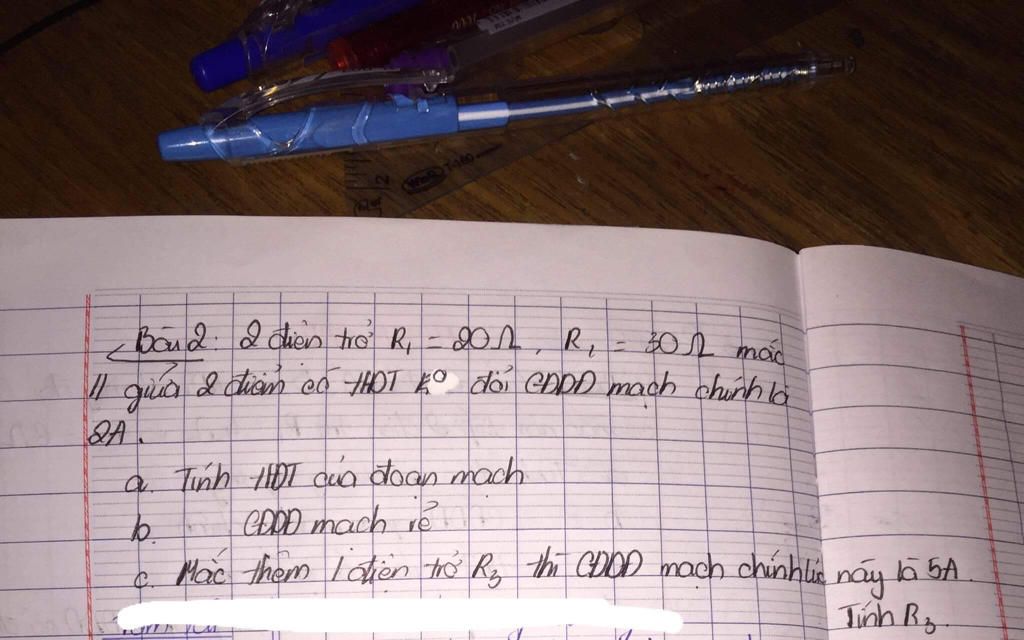 T-160
Bài 2: 2 điện trở R₁ = 20Ω, R₂ = 30Ω mắc
// giữa 2 điểm có HĐT k° đổi CĐDĐ mạch chính là
2A.
a. Tính HĐT của đoạn mạch
b. CĐDĐ mạch rẽ
c. Mắc thêm 1 điện trở R₃ thì CĐDĐ mạch chính lúc này là 5A.
Tính R₃.